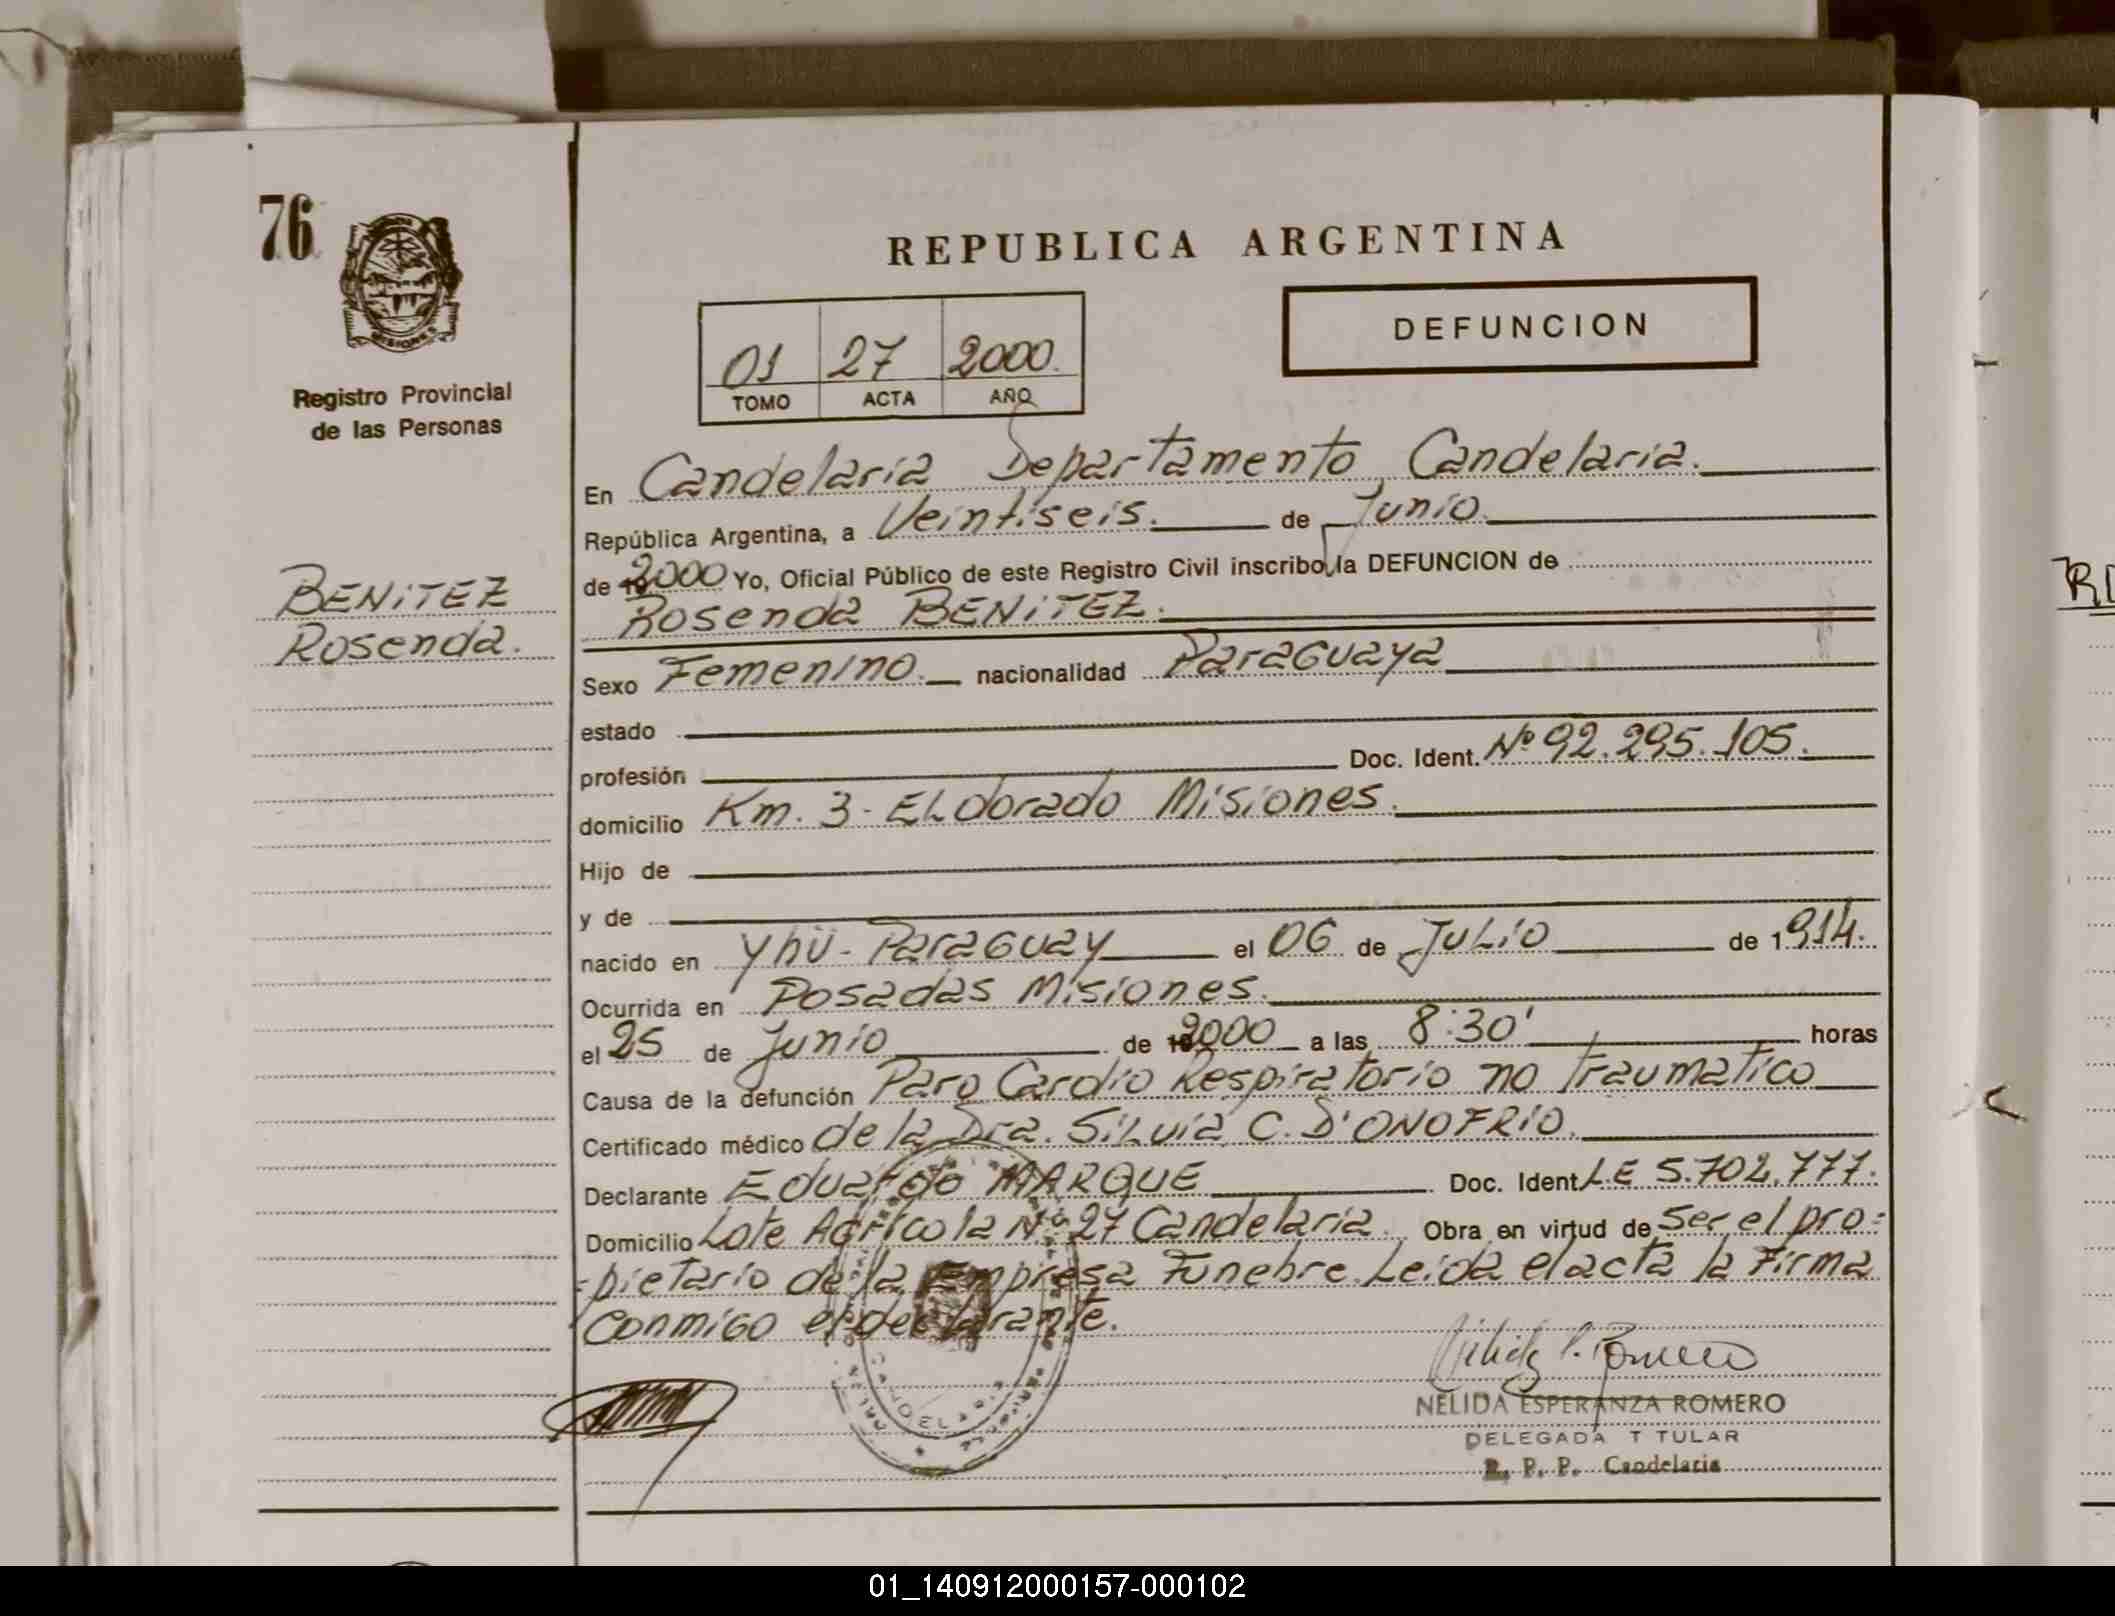 76
MISIONES
Registro Provincial
de las Personas
BENITEZ
Rosenda.
REPUBLICA ARGENTINA
01 27 2000.
TOMO ACTA AÑO
DEFUNCION
En Candelaria Departamento Candelaria.
República Argentina, a Veintiseis. de Junio.
de 2000 Yo, Oficial Público de este Registro Civil inscribo la DEFUNCION de
Rosenda BENITEZ.
Sexo Femenino. nacionalidad Paraguaya
estado
profesión Doc. Ident. Nº 92.295.105.
domicilio Km. 3 - ELdorado Misiones.
Hijo de
y de
nacido en Yhú - Paraguay el 06 de Julio de 1914.
Ocurrida en Posadas Misiones.
el 25 de Junio de 2000 a las 8:30' horas
Causa de la defunción Paro Cardio Respiratorio no traumatico
Certificado médico de la Dra. Silvia C. D'ONOFRIO.
Declarante Eduardo MARQUE Doc. Ident. L.E 5.702.777.
Domicilio Lote Agrícola Nº 27 Candelaria. Obra en virtud de Ser el pro=
=pietario de la Empresa Funebre. Leida el acta la Firma
Conmigo el declarante.
CANDELARIA
NELIDA ESPERANZA ROMERO
DELEGADA T TULAR
R. P. P. Candelaria
01_140912000157-000102